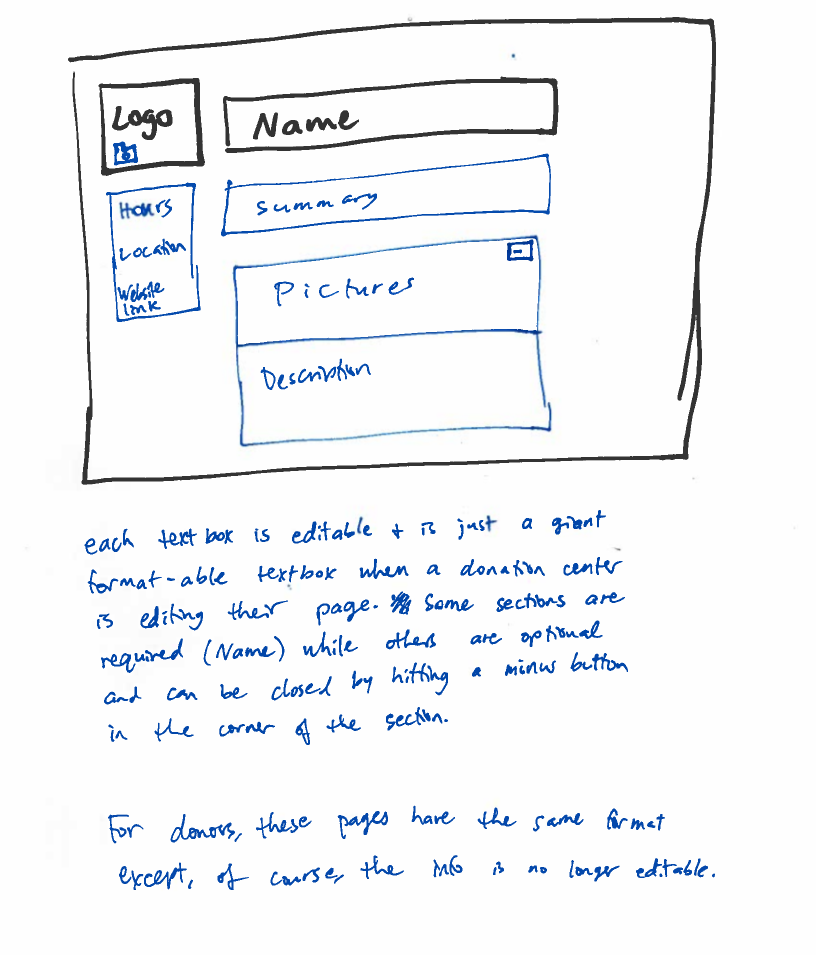 Logo
Name
Hours
Location
Website
link
Summary
Pictures
Description
each text box is editable + is just a giant
format-able textbox when a donation center
is editing their page. Some sections are
required (Name) while others are optional
and can be closed by hitting a minus button
in the corner of the section.
For donors, these pages have the same format
except, of course, the info is no longer editable.